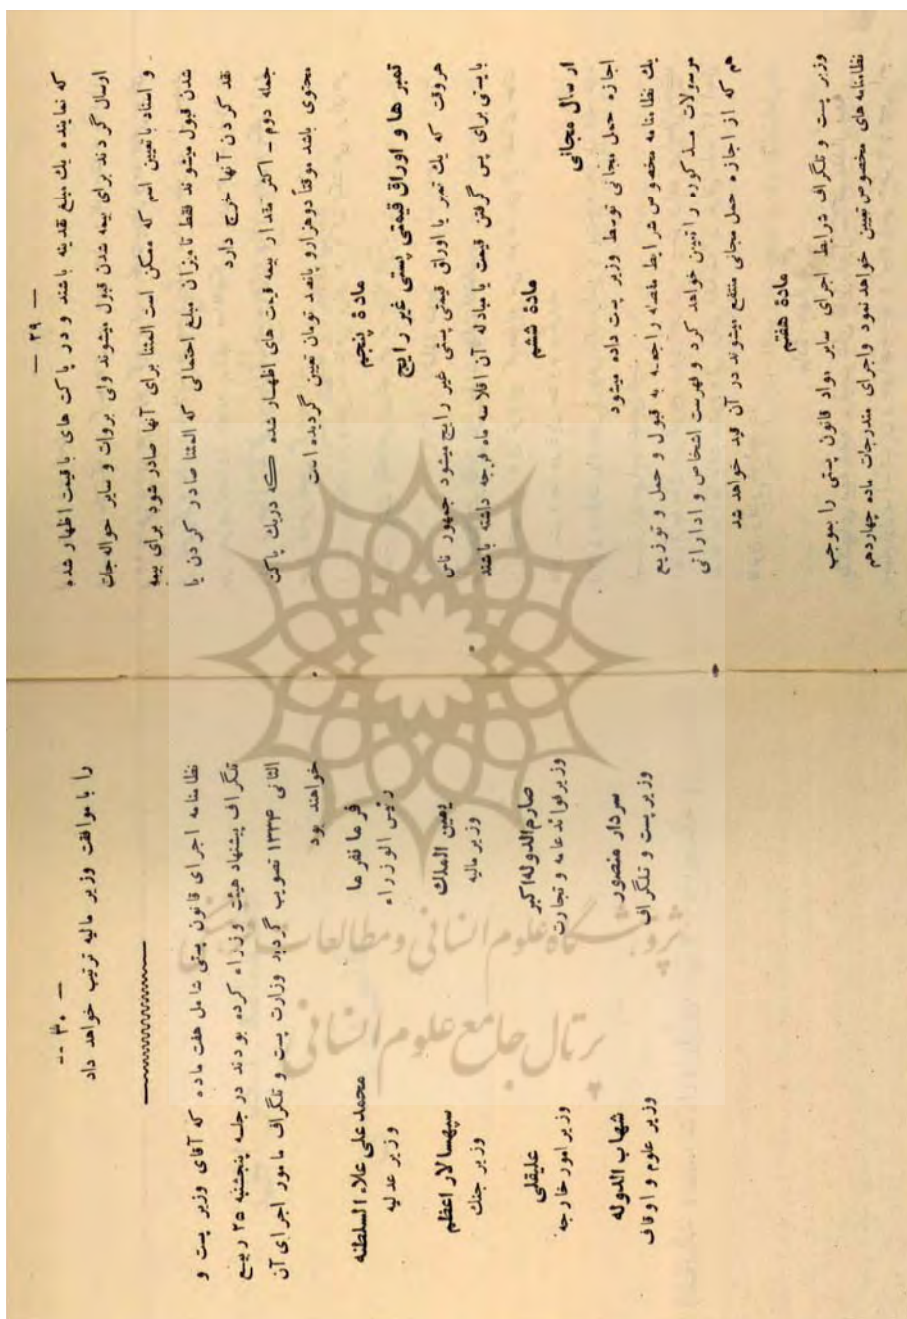 — ۲۹ —
که نماینده یك مبلغ نقدینه باشند و در پاکت های با قیمت اظهار شده
ارسال گردند برای بیمه شدن قبول میشوند ولی بروات و سایر حواله جات
و اسناد با تعیین اسم که ممکن است المثنا برای آنها صادر شود برای بیمه
شدن قبول میشوند فقط تا میزان مبلغ احتمالی که المثنا صادر کردن یا
نقد کردن آنها خرج دارد
جمله دوم - اکثر مقدار بیمه قیمت های اظهار شده که دریك پاکت
محتوی باشد موقتاً دوهزارو پانصد تومان تعیین گردیده است
مادۀ پنجم
تمبر ها و اوراق قیمتی پستی غیر رایج
هروقت که یك تمبر یا اوراق قیمتی پستی غیر رایج میشود جمهور ناس
بایستی برای پس گرفتن قیمت یا مبادله آن اقلا سه ماه فرجه داشته باشند
مادۀ ششم
ارسال مجانی
اجازه حمل مجانی توسط وزیر پست داده میشود
یك نظامنامه مخصوص شرایط ماصله راجعه به قبول و حمل و توزیع
مرسولات مذکوره را تعیین خواهد کرد و فهرست اشخاص و اداراتی
هم که از اجازه حمل مجانی منتفع میشوند در آن قید خواهد شد
مادۀ هفتم
وزیر پست و تلگراف شرایط اجرای سایر مواد قانون پستی را بموجب
نظامنامه های مخصوص تعیین خواهد نمود واجرای مندرجات ماده چهاردهم
— ۳۰ —
را با موافقت وزیر مالیه ترتیب خواهد داد
نظامنامه اجرای قانون پستی شامل هفت ماده که آقای وزیر پست و
تلگراف پیشنهاد هیئت وزراء کرده بودند در جلسه پنجشنبه ۲۵ ربیع
الثانی ۱۳۳۴ تصویب گردید وزارت پست و تلگراف مامور اجرای آن
خواهند بود
فرمانفرما محمدعلی علاء السلطنه
رئیس الوزراء وزیر عدلیه
یمین الملك سپهسالار اعظم
وزیر مالیه وزیر جنك
صارم الدوله اکبر علیقلی
وزیر فواید عامه و تجارت وزیر امور خارجه
سردار منصور شهاب الدوله
وزیر پست و تلگراف وزیر علوم و اوقاف
پژوهشگاه علوم انسانی و مطالعات فرهنگی
پرتال جامع علوم انسانی